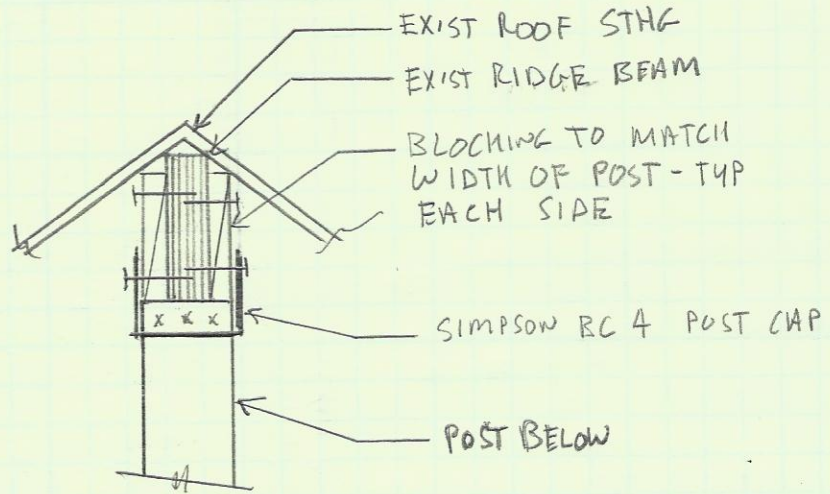 EXIST ROOF STHG
EXIST RIDGE BEAM
BLOCKING TO MATCH
WIDTH OF POST - TYP
EACH SIDE
X X X
SIMPSON BC 4 POST CAP
POST BELOW